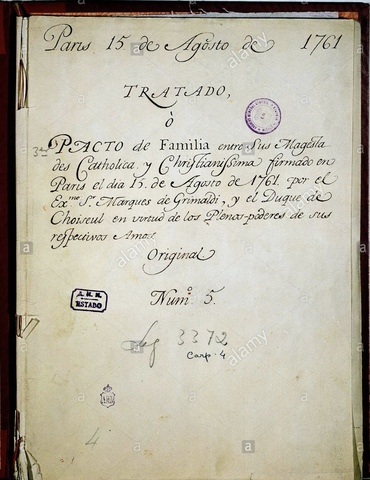 Paris 15 de Agosto de 1761
TRATADO,
ò
3er PACTO de Familia entre Sus Magesta
des Catholica y Christianissima firmado en
Paris el dia 15 de Agosto de 1761 por el
Exmo Sr Marques de Grimaldi, y el Duque de
Choiseul en virtud de los Plenos-poderes de sus
respectivos Amos.
Original
Numº 5.
A.H.N.
ESTADO
Leg 3372
Carp. 4
AHN
4
alamy